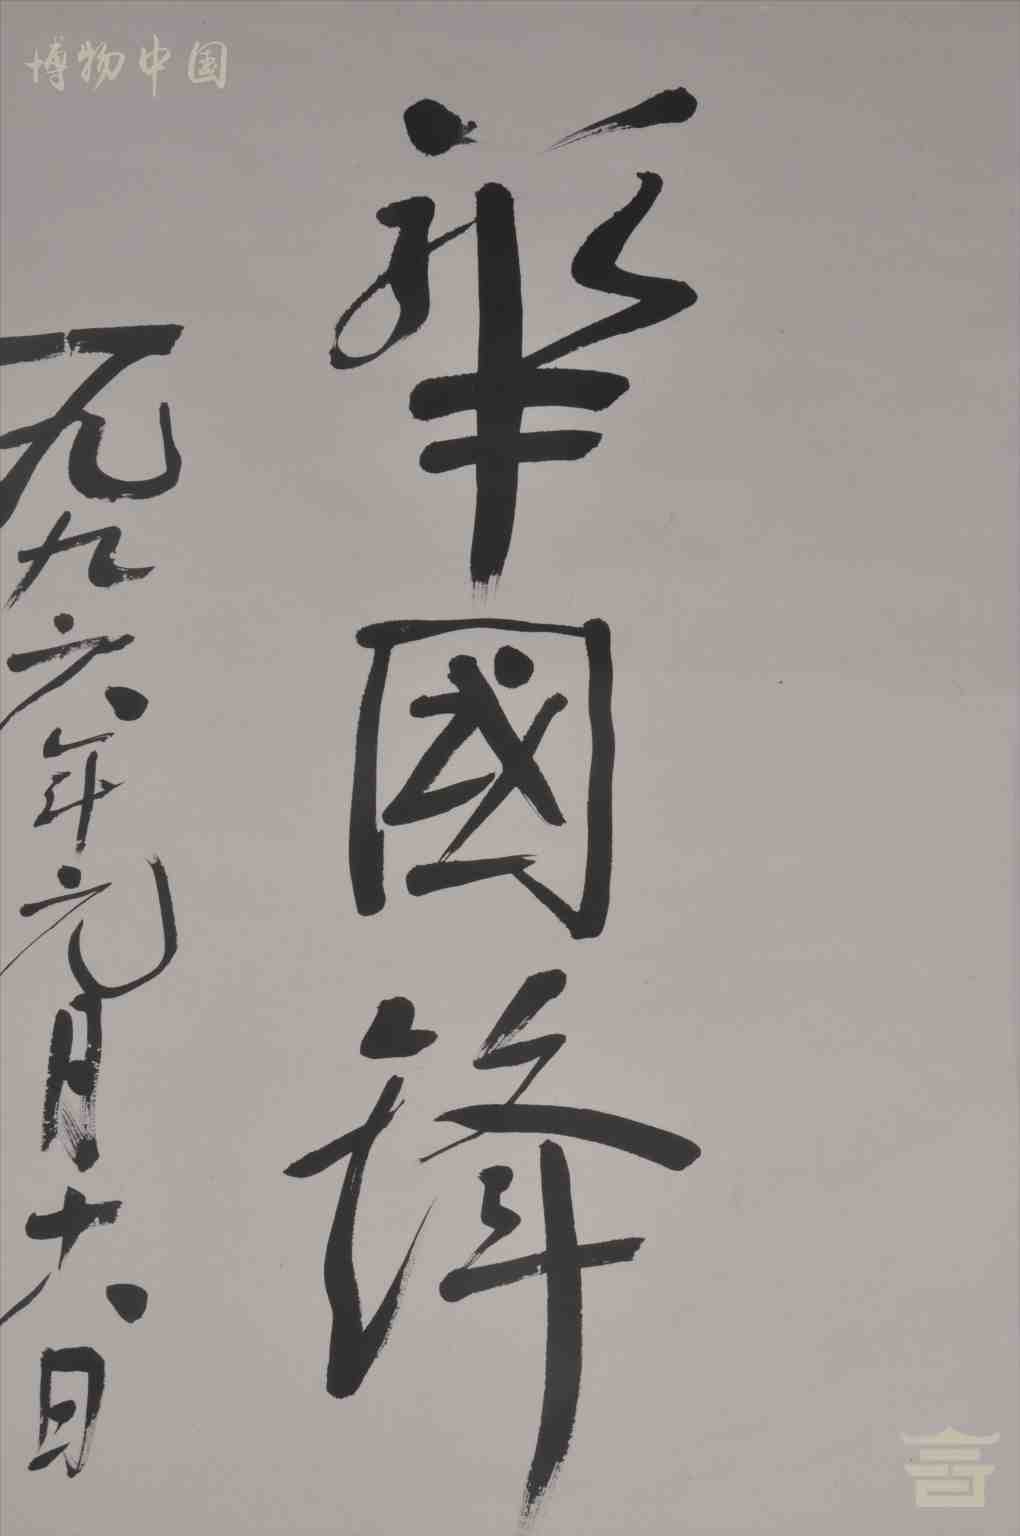 博物中国
華國鋒
一九九六年元月十八日